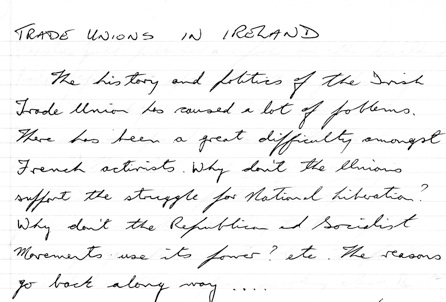 TRADE UNIONS IN IRELAND
The history and politics of the Irish
Trade Union has caused a lot of problems.
There has been a great difficulty amongst
French activists. Why don't the Unions
support the struggle for National Liberation?
Why don't the Republican ad Socialist
Movements use its power? etc. The reasons
go back along way ....